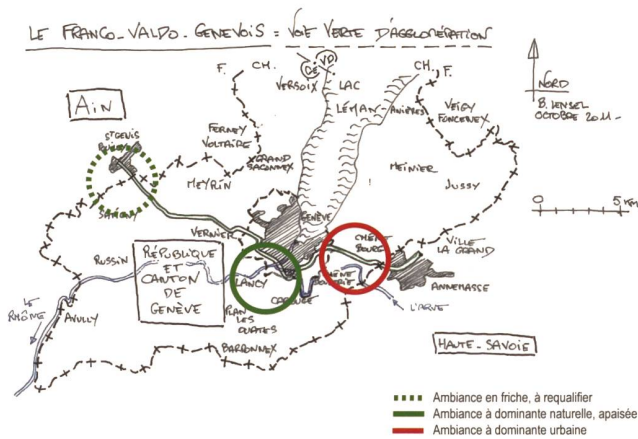 LE FRANCO-VALDO-GENEVOIS = VOIE VERTE D'AGGLOMÉRATION
F. CH.
GE VD
VERSOIX
LAC
LÉMAN
CH. F.
ANIÈRES
VEIGY
FONCENEX
NORD
B. LENSEL
OCTOBRE 2011-
AIN
ST GENIS
POUILLY
FERNEY
VOLTAIRE
GRAND
SACONNEX
MEYRIN
MEINIER
JUSSY
0 5 KM
SATIGNY
VERNIER
GENÈVE
CHÊNE
BOURG
VILLE
LA GRAND
RUSSIN
RÉPUBLIQUE
ET
CANTON
DE
GENÈVE
LANCY
CHÊNE
ANNEMASSE
LE
RHÔME
AVULLY
PLAN
LES
OUATES
CAROUGE
L'ARVE
BARDONNEX
HAUTE-SAVOIE
Ambiance en friche, à requalifier
Ambiance à dominante naturelle, apaisée
Ambiance à dominante urbaine